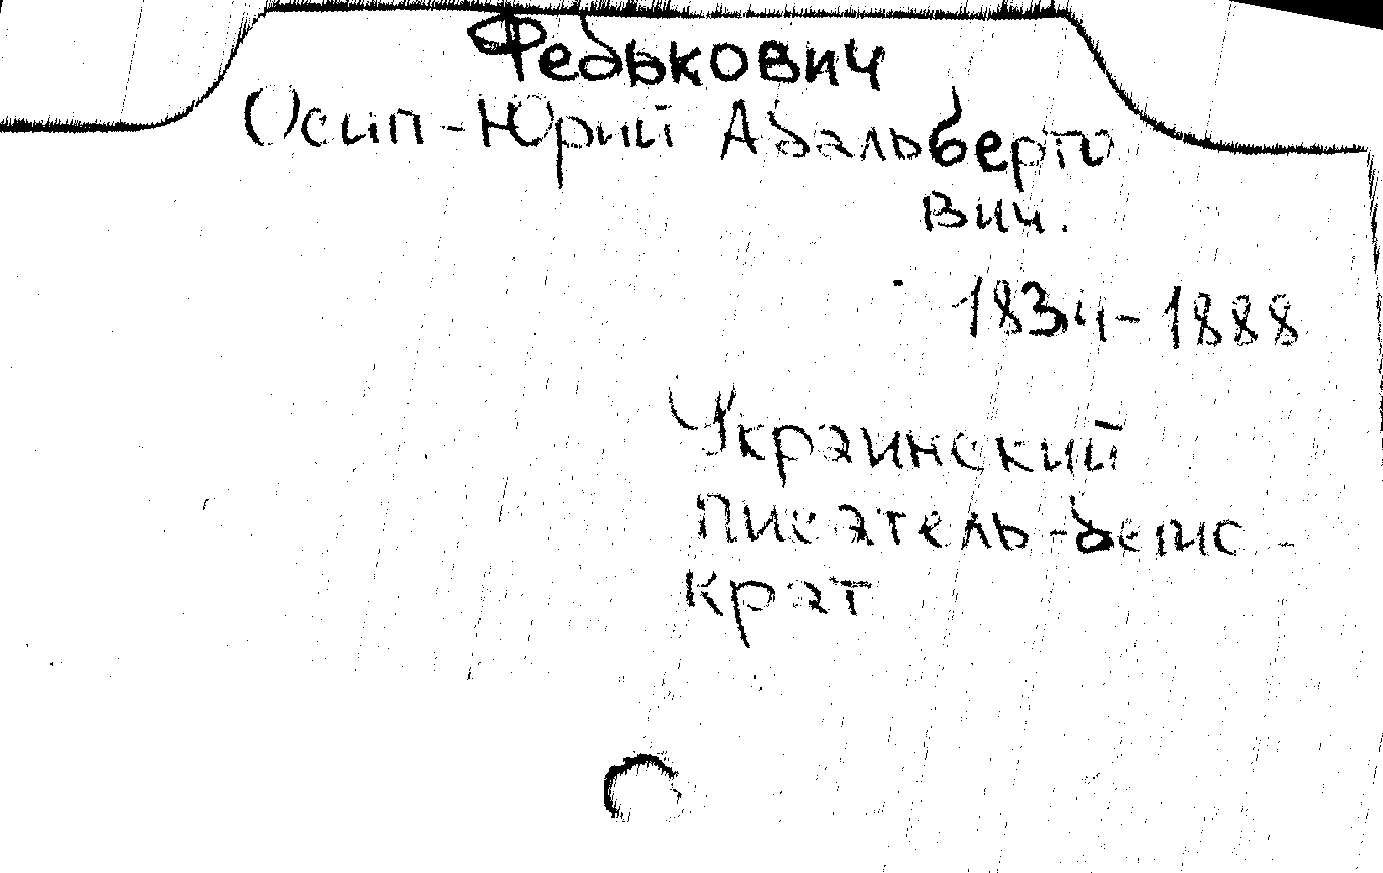 Федькович
Осип-Юрий Адальберто
вич.
1834-1888
Украинский
писатель-демо-
крат